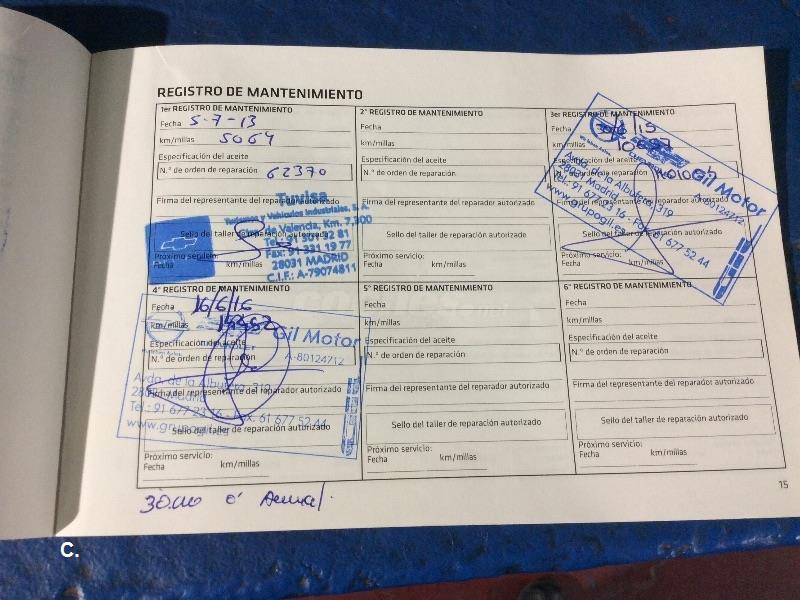 REGISTRO DE MANTENIMIENTO
1er REGISTRO DE MANTENIMIENTO
Fecha 5-7-13
km/millas 5064
Especificación del aceite
N.° de orden de reparación 62370
Firma del representante del reparador autorizado
Tuvisa
Turismos y Vehículos Industriales, S. A.
Sello del taller de reparación autorizado
Valencia, Km. 7,300
Tel: 91 301 32 81
Fax: 91 331 19 77
28031 MADRID
C.I.F.: A-79074811
Próximo servicio:
Fecha km/millas
2° REGISTRO DE MANTENIMIENTO
Fecha
km/millas
Especificación del aceite
N.° de orden de reparación
Firma del representante del reparador autorizado
Sello del taller de reparación autorizado
Próximo servicio:
Fecha km/millas
3er REGISTRO DE MANTENIMIENTO
Fecha
km/millas
Especificación del aceite
N.° de orden de reparación
Gil Motor
A-80124712
Avda. de la Albufera, 319
28031 Madrid
Tel.: 91 677 23 16 - Fax: 61 677 52 44
www.grupogil.es
Firma del representante del reparador autorizado
Sello del taller de reparación autorizado
Próximo servicio:
Fecha km/millas
4° REGISTRO DE MANTENIMIENTO
Fecha 16/6/16
km/millas
Especificación del aceite
Gil Motor
N.° de orden de reparación
A-80124712
Avda. de la Albufera, 319
Firma del representante del reparador autorizado
28031 Madrid
Tel.: 91 677 23 16 - Fax: 61 677 52 44
www.grupogil.es
Sello del taller de reparación autorizado
Próximo servicio:
Fecha km/millas
5° REGISTRO DE MANTENIMIENTO
Fecha
km/millas
Especificación del aceite
N.° de orden de reparación
Firma del representante del reparador autorizado
Sello del taller de reparación autorizado
Próximo servicio:
Fecha km/millas
6° REGISTRO DE MANTENIMIENTO
Fecha
km/millas
Especificación del aceite
N.° de orden de reparación
Firma del representante del reparador autorizado
Sello del taller de reparación autorizado
Próximo servicio:
Fecha km/millas
15
30.000 ó Anual.
C.